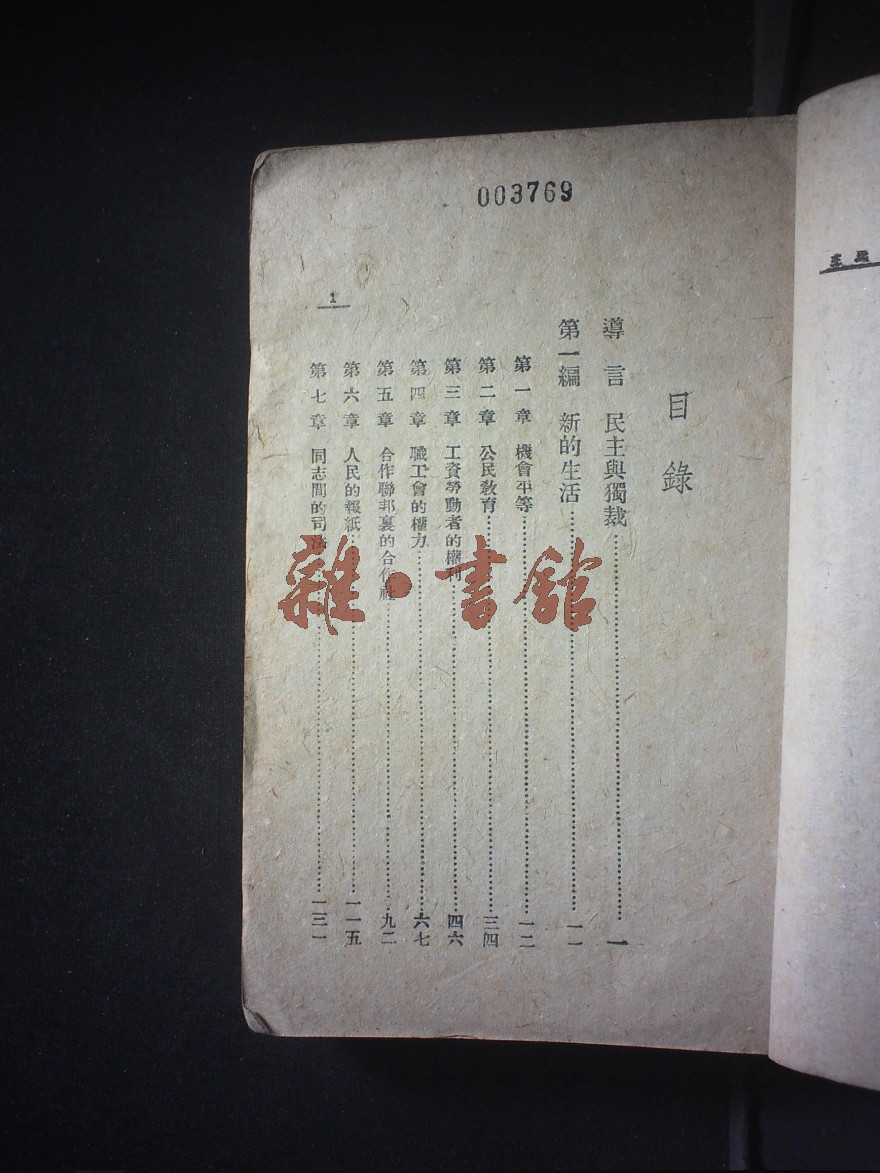 003769
目錄
導言 民主與獨裁……一
第一編 新的生活……一一
第一章 機會平等……一二
第二章 公民教育……三四
第三章 工資勞動者的權利……四六
第四章 職工會的權力……六七
第五章 合作聯邦裏的合作社……九二
第六章 人民的報紙……一一五
第七章 同志間的司法……一三一
1
雜·書館